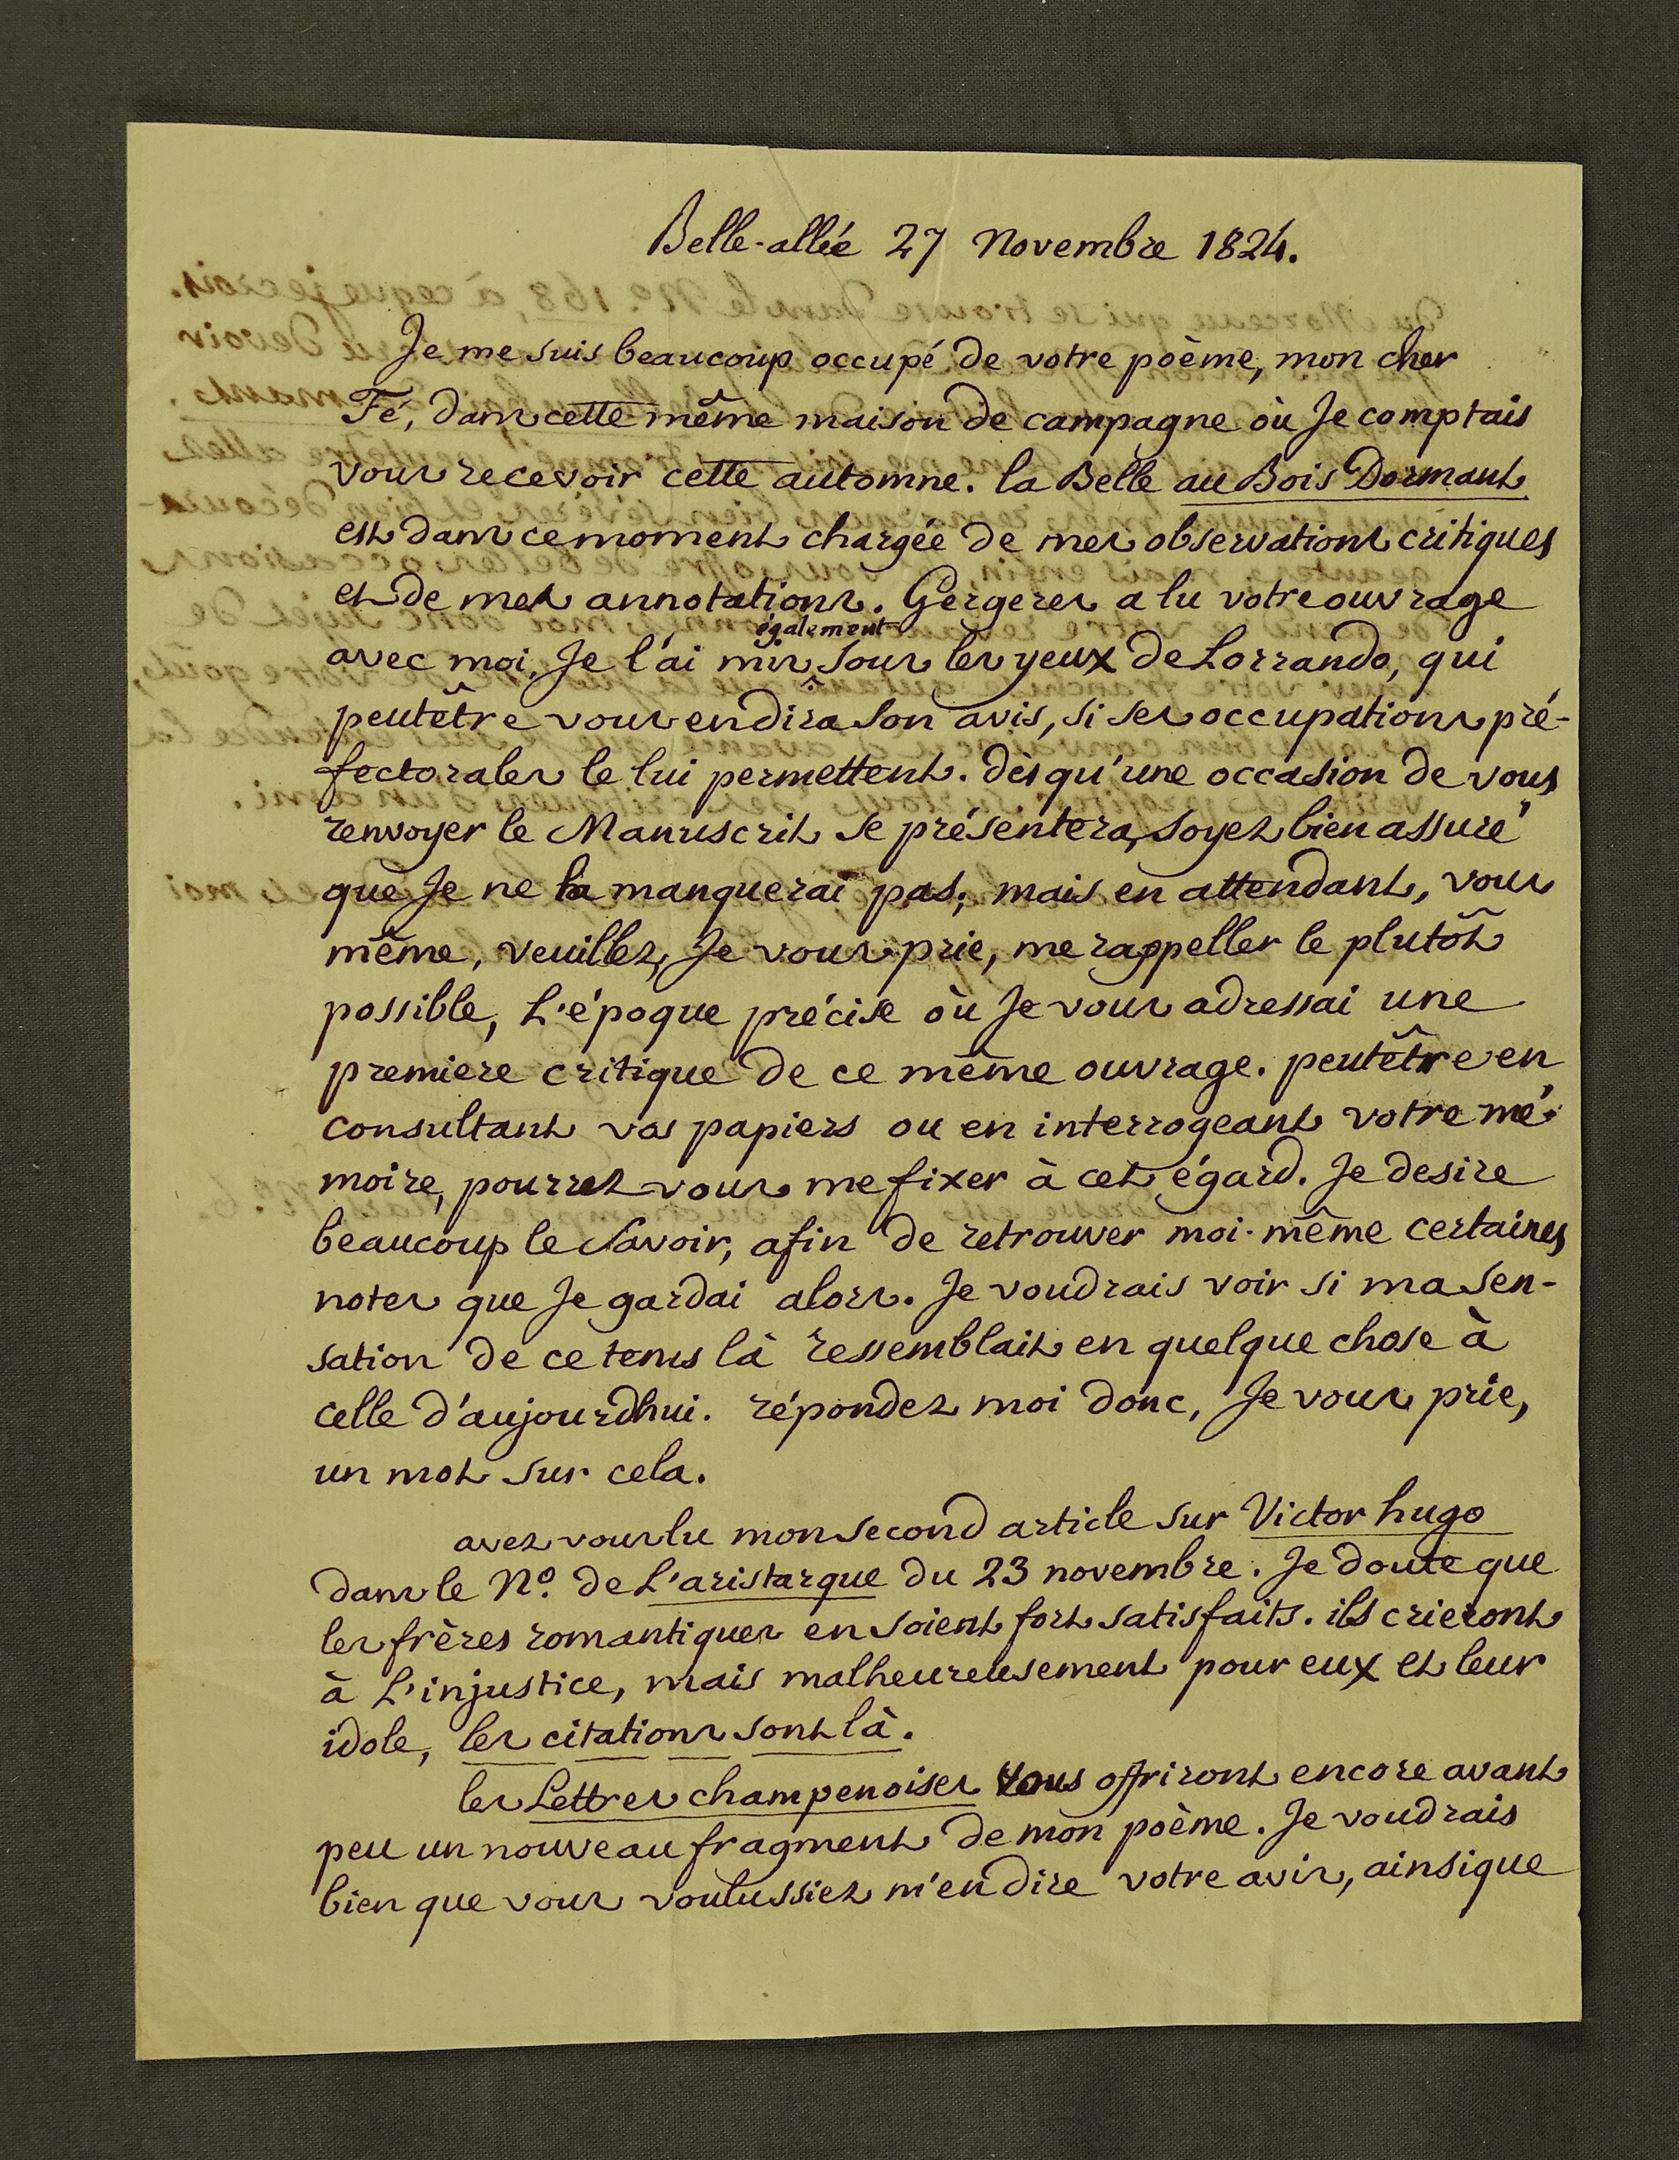 Belle-allée 27 Novembre 1824.
Je me suis beaucoup occupé de votre poème, mon cher
Fé, dans cette même maison de campagne où Je comptais
vous recevoir cette automne. la Belle au Bois Dormant
est dans ce moment chargée de mes observations critiques
et de mes annotations. Gergeres a lu votre ouvrage
avec moi, Je l'ai mis également sous les yeux de Lorrando, qui
peutêtre vous en dira son avis, si ses occupations pré-
fectorales le lui permettent. dès qu'une occasion de vous
renvoyer le Manuscrit se présentera, soyez bien assuré
que Je ne la manquerai pas; mais en attendant, vous
même, veuillez, Je vous prie, me rappeller le plutôt
possible, L'époque précise où Je vous adressai une
premiere critique de ce même ouvrage. peutêtre en
consultant vos papiers ou en interrogeant votre mé-
moire, pourrez vous me fixer à cet égard. Je desire
beaucoup le savoir, afin de retrouver moi-même certaines
notes que Je gardai alors. Je voudrais voir si ma sen-
sation de ce tems là ressemblait en quelque chose à
celle d'aujourdhui. répondez moi donc, Je vous prie,
un mot sur cela.
avez vous lu mon second article sur Victor hugo
dans le N.º de L'aristarque du 23 novembre. Je doute que
les frères romantiques en soient fort satisfaits. ils crieront
à L'injustice, mais malheureusement pour eux et leur
idole, les citations sont là.
les Lettres champenoises vous offriront encore avant
peu un nouveau fragment de mon poème. Je voudrais
bien que vous voulussiez m'en dire votre avis, ainsique